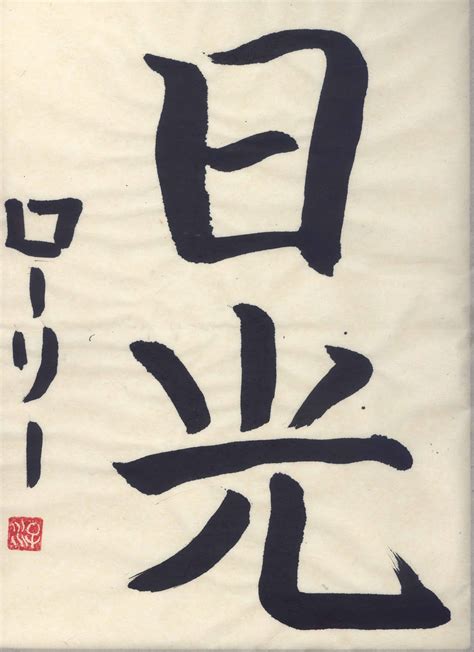 日光
ローリー